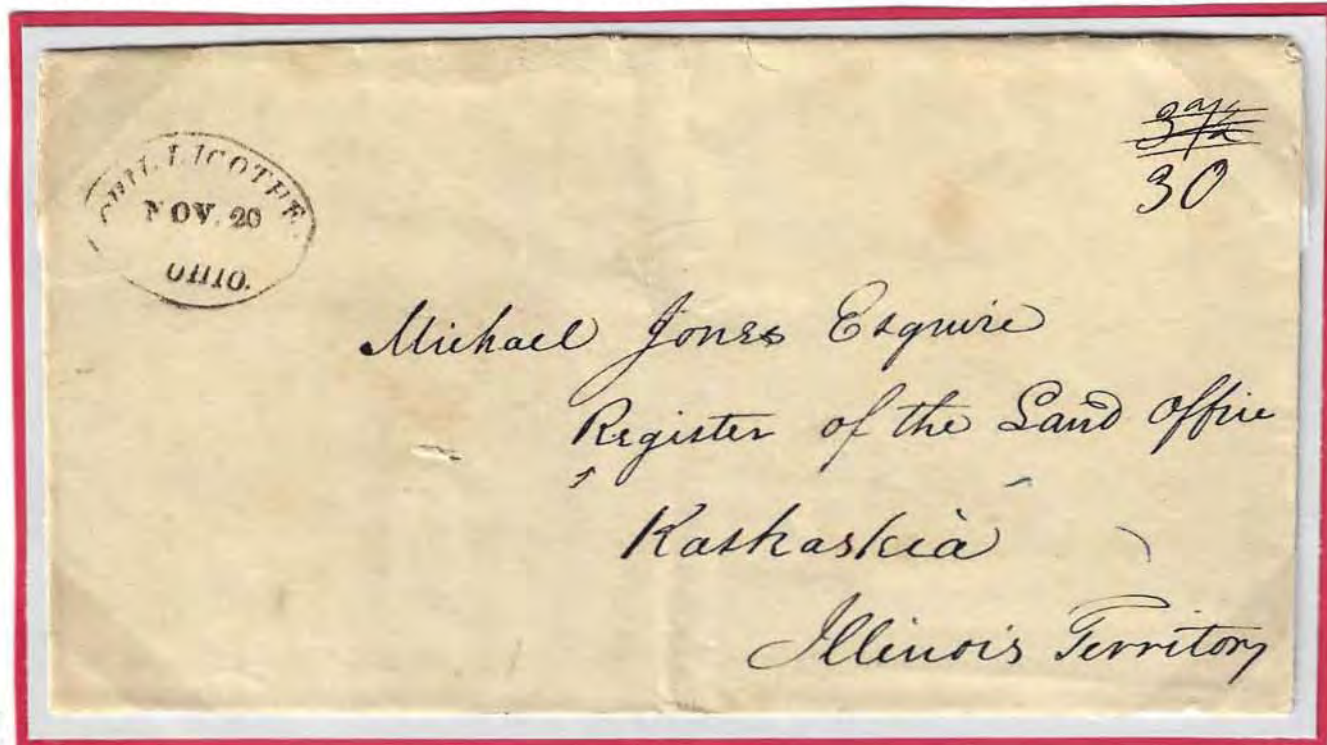 CHILLICOTHE
NOV. 20
OHIO.
30
Michael Jones Esquire
Register of the Land Office
Kaskaskia
Illinois Territory